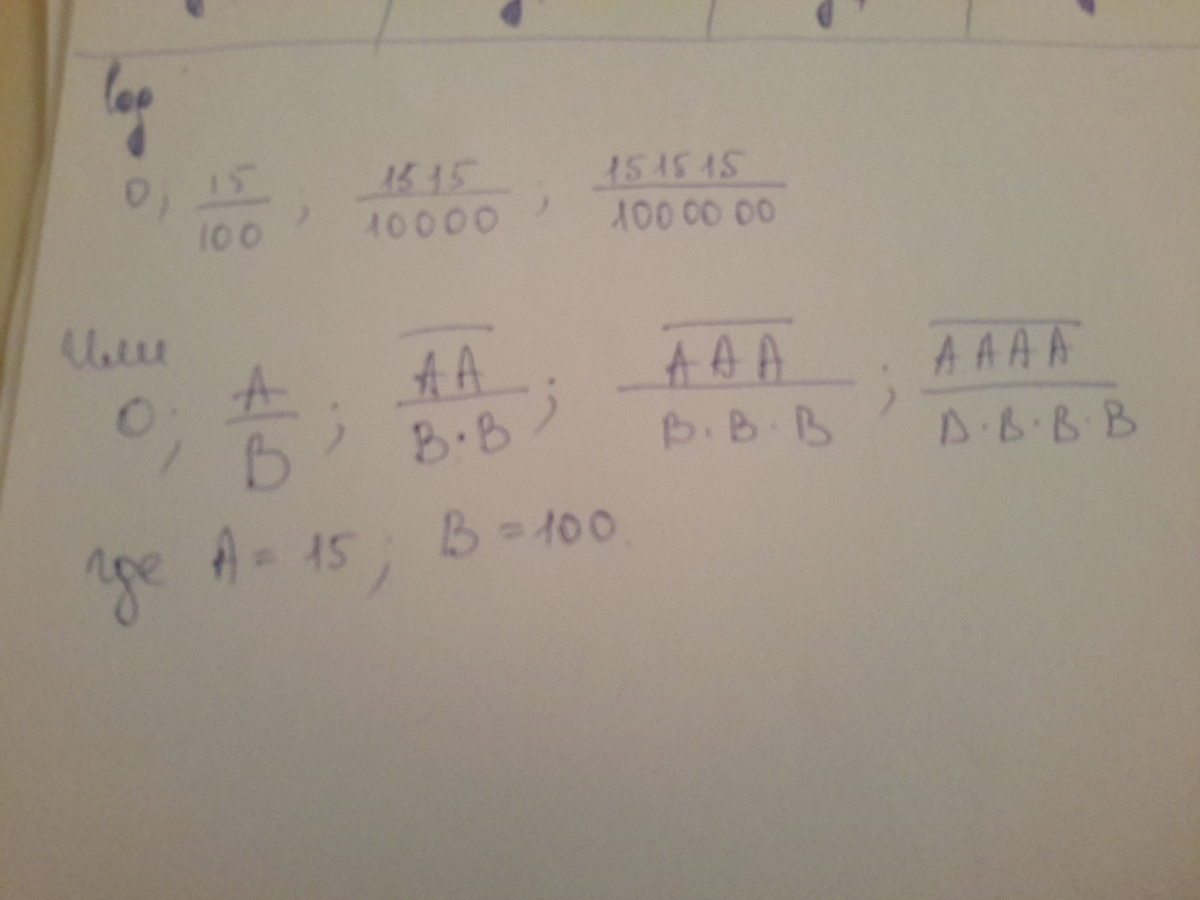 0; 15/100; 1515/10000; 151515/1000000
Или
0; A/B; AA/B·B; AAA/B·B·B; AAAA/B·B·B·B
где A = 15; B = 100.